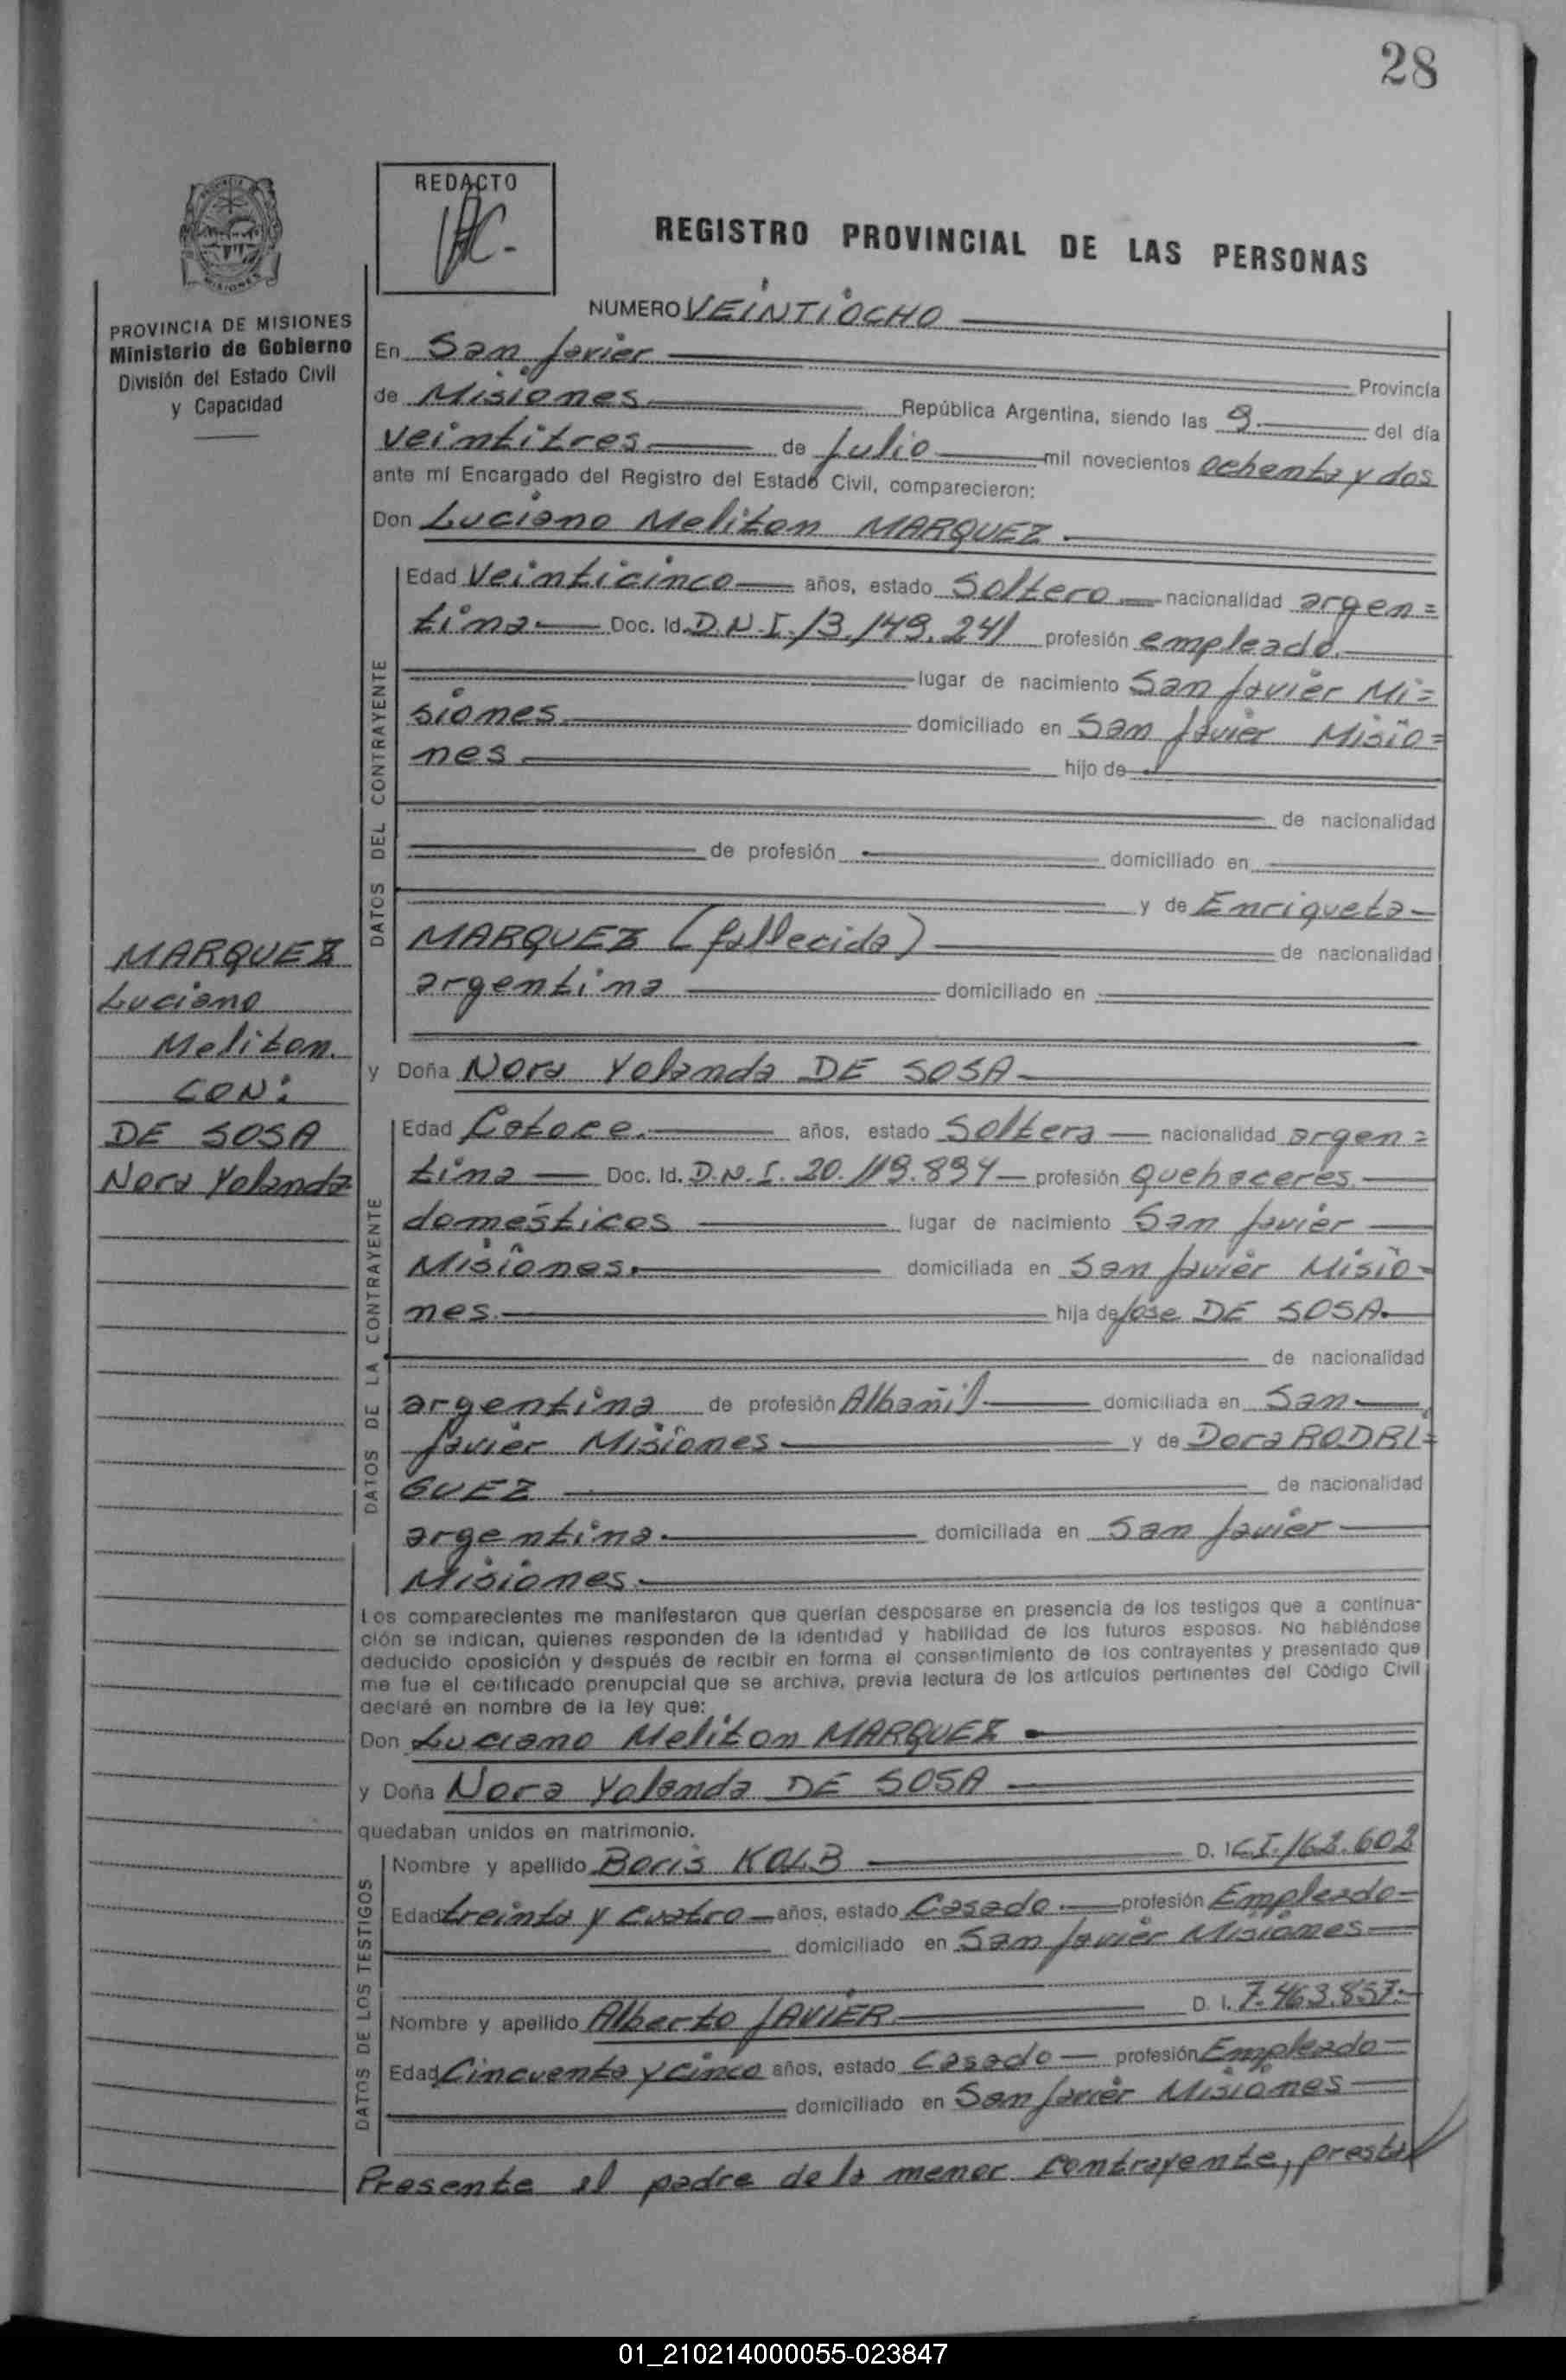 28
REDACTO
REGISTRO PROVINCIAL DE LAS PERSONAS
MISIONES
PROVINCIA DE MISIONES
Ministerio de Gobierno
División del Estado Civil
y Capacidad
NUMERO VEINTIOCHO
En San Javier Provincia
de Misiones República Argentina, siendo las 9 del día
veintitres de Julio mil novecientos ochenta y dos
ante mí Encargado del Registro del Estado Civil, comparecieron:
Don Luciano Meliton MARQUEZ
Edad Veinticinco años, estado Soltero nacionalidad argen=
tina Doc. Id. D.N.I. 13.149.241 profesión empleado.
lugar de nacimiento San Javier Mi=
siones domiciliado en San Javier Misio=
nes hijo de
de nacionalidad
de profesión domiciliado en
y de Enriqueta
MARQUEZ (fallecida) de nacionalidad
argentina domiciliado en
DATOS DEL CONTRAYENTE
MARQUEZ
Luciano
Meliton
CON:
DE SOSA
Nora Yolanda
y Doña Nora Yolanda DE SOSA
Edad Catorce. años, estado Soltera nacionalidad argen=
tina Doc. Id. D.N.I. 20.119.894 profesión Quehaceres
domésticos lugar de nacimiento San Javier
Misiones. domiciliada en San Javier Misio-
nes. hija de José DE SOSA.
de nacionalidad
argentina de profesión Albañil domiciliada en San
Javier Misiones y de Dora RODRI=
GUEZ de nacionalidad
argentina. domiciliada en San Javier
Misiones.
DATOS DE LA CONTRAYENTE
Los comparecientes me manifestaron que querían desposarse en presencia de los testigos que a continua-
ción se indican, quienes responden de la identidad y habilidad de los futuros esposos. No habiéndose
deducido oposición y después de recibir en forma el consentimiento de los contrayentes y presentado que
me fue el certificado prenupcial que se archiva, previa lectura de los artículos pertinentes del Código Civil
declaré en nombre de la ley que:
Don Luciano Meliton MARQUEZ
y Doña Nora Yolanda DE SOSA
quedaban unidos en matrimonio.
Nombre y apellido Boris KOLB D. I. C.I. 162.602
Edad treinta y cuatro años, estado Casado profesión Empleado
domiciliado en San Javier Misiones
Nombre y apellido Alberto JAVIER D. I. 7.463.857.
Edad Cincuenta y cinco años, estado Casado profesión Empleado
domiciliado en San Javier Misiones
DATOS DE LOS TESTIGOS
Presente el padre de la menor contrayente, presta
01_210214000055-023847